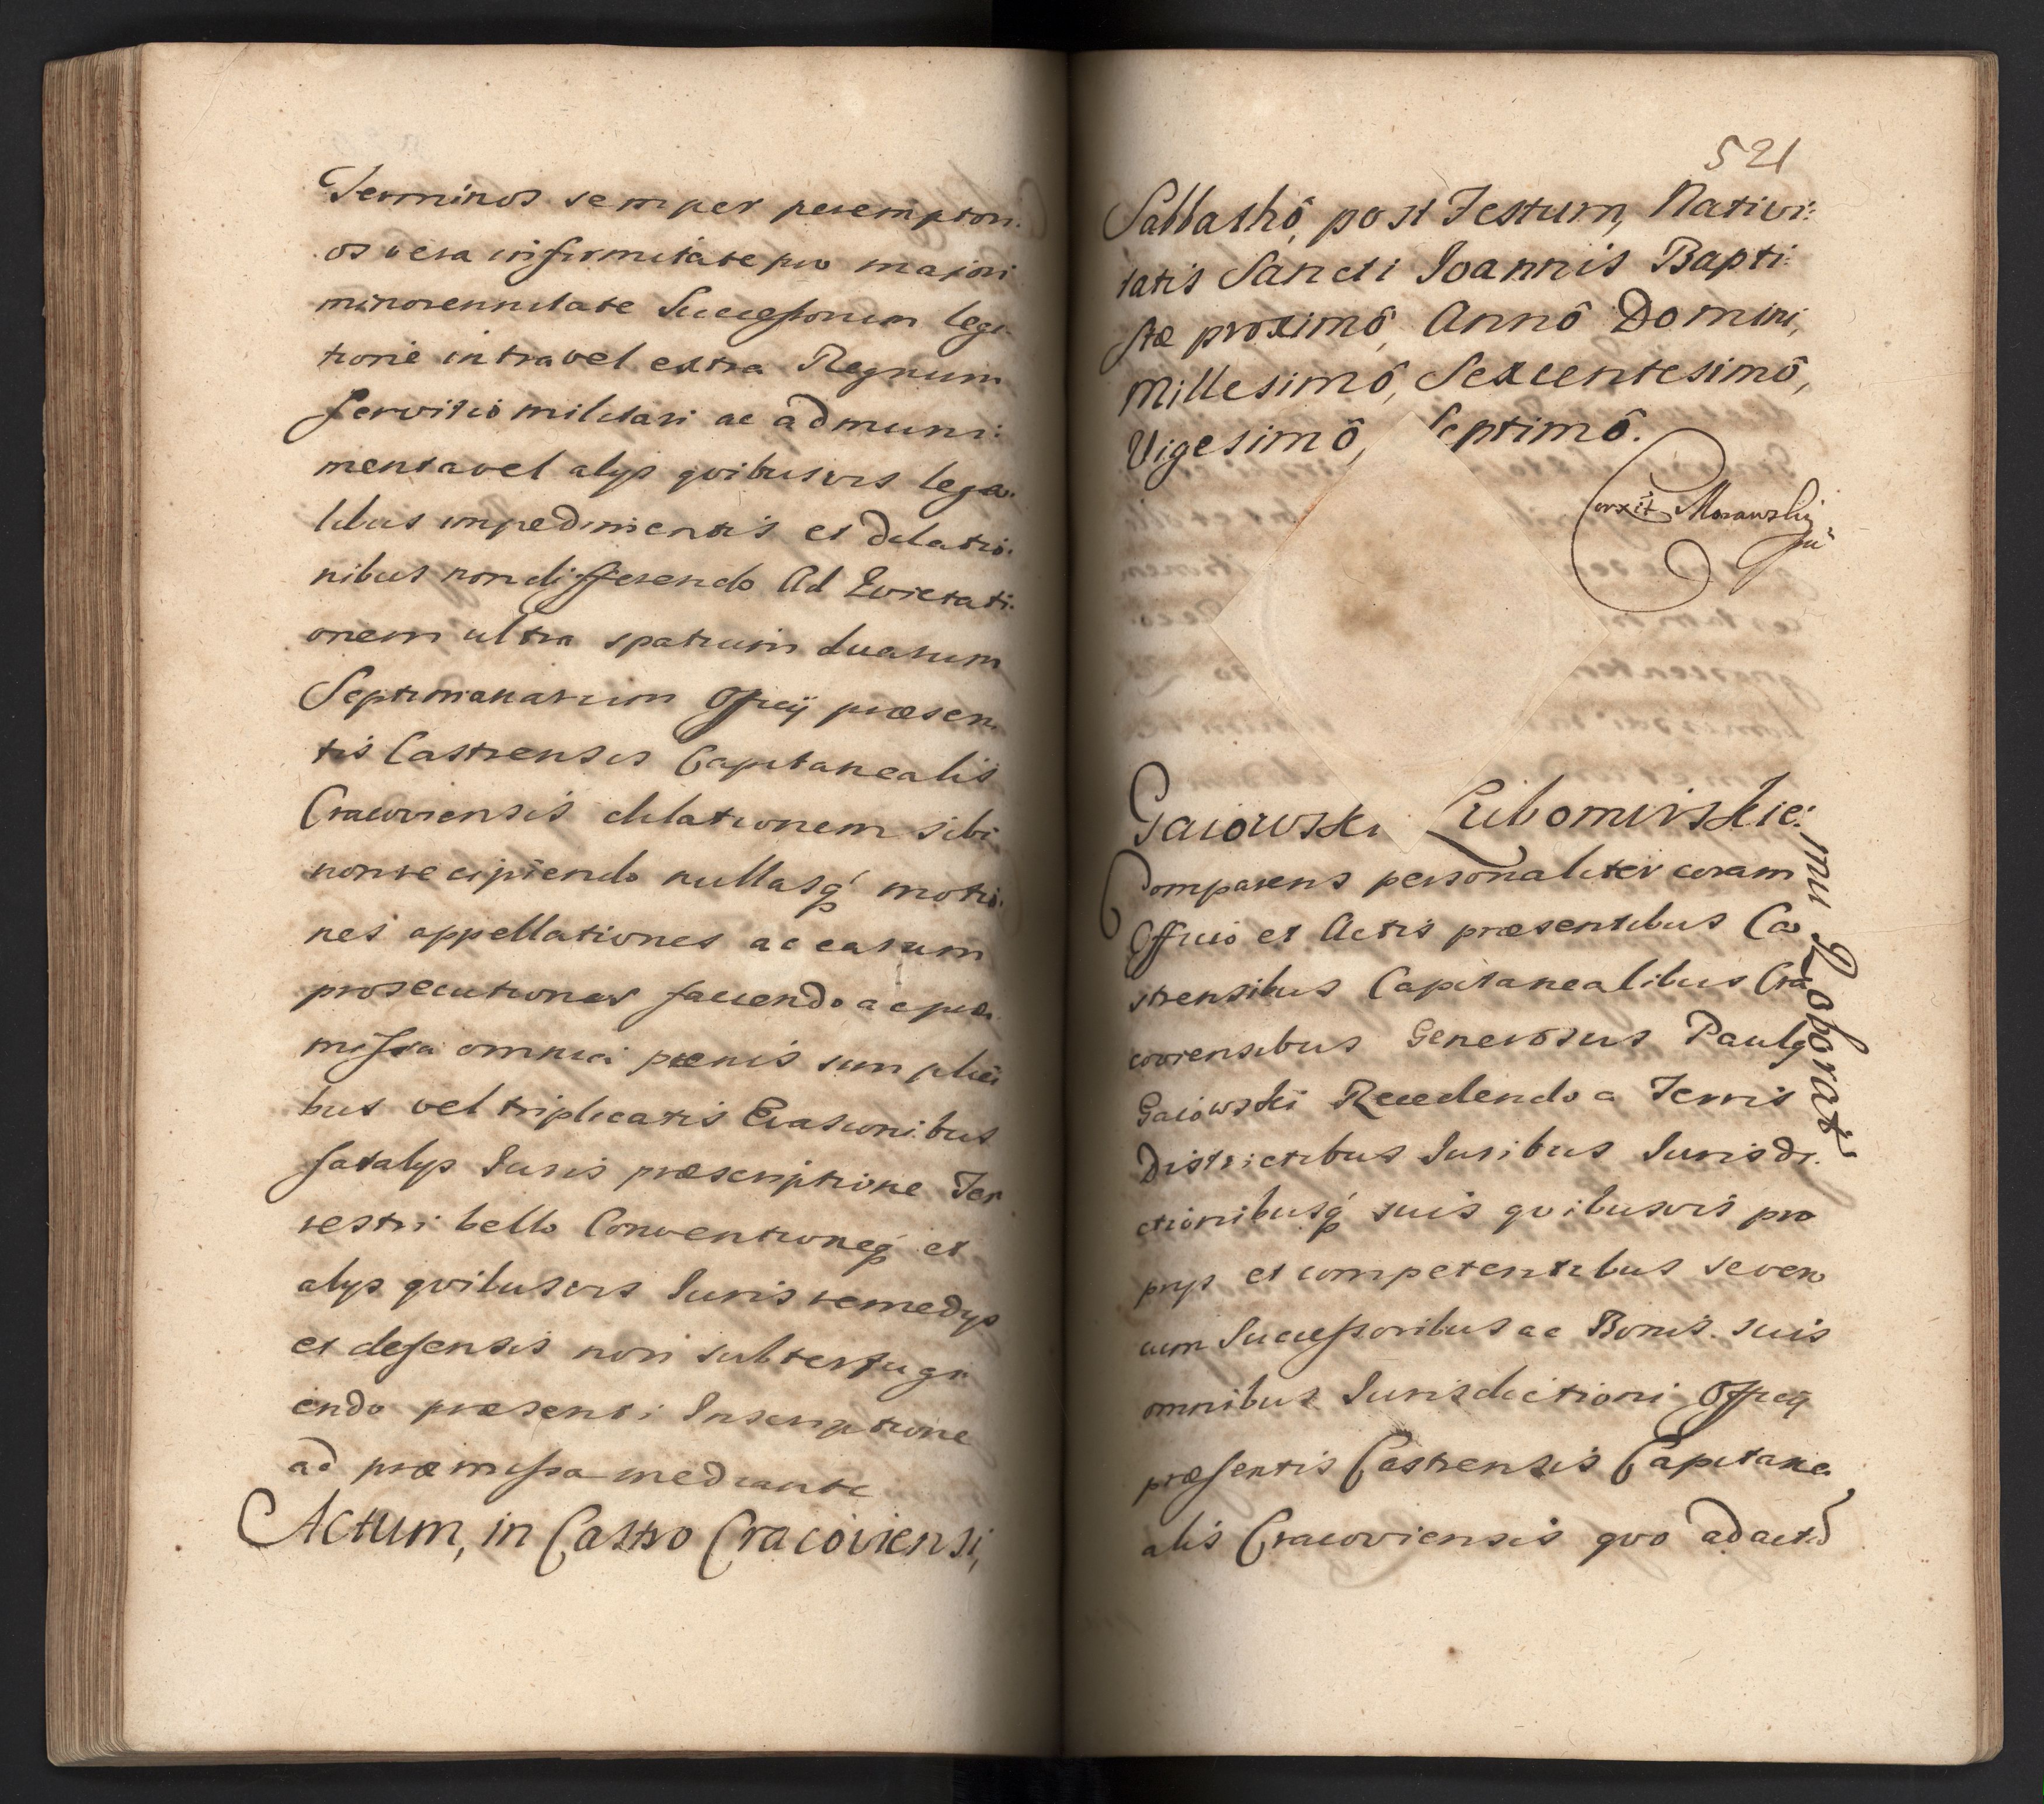 Terminos semper perempton:
os vera infirmitate pro majori
minorennitate Successorum lega:
tione intra vel extra Regnum
servitio militari ac ad muni:
menta vel alys qvibusvis lega:
libus impedimentis et dilatio:
nibus non differendo Ad Evictati:
onem ultra spatium duarum
Septimanarum Officij præsen:
tis Castrensis Capitanealis
Cracoviensis dilationem sibi
non recipiendo nullasq́ motio:
nes appellationes ac earum
prosecutiones faciendo ac præ:
missa omnia pænis simplici
bus vel triplicatis Evasionibus
fatalys Iuris præscriptione Ter
restri bello Conventioneq́ et
alys qvibusvis Iuris remedys
et defensis non subterfugi
endo præsenti Inscriptione
ad præmissa mediante
Actum, in Castro Cracoviensi,
521
Sabbathô, post Festum, Nativi:
tatis Sancti Ioannis Bapti:
stæ proximô, Annô Domini,
Millesimô, Sexcentesimô,
Vigesimô, Septimô.
Corxit Morawski
Gaiowski Lubomirskie:
mu Roborat
Comparens personaliter coram
Officio et Actis præsentibus Ca
strensibus Capitanealibus Cra
coviensibus Generosus Paulq
Gaiowski Recedendo a Terris
Districtibus Iuribus Iurisdi:
ctionibusq́ suis qvibusvis pro
prys et competentibus seven
cum Successoribus ac Bonis suis
omnibus Iurisdictioni Officij
præsentis Castrensis Capitane
alis Cracoviensis qvo ad actũ